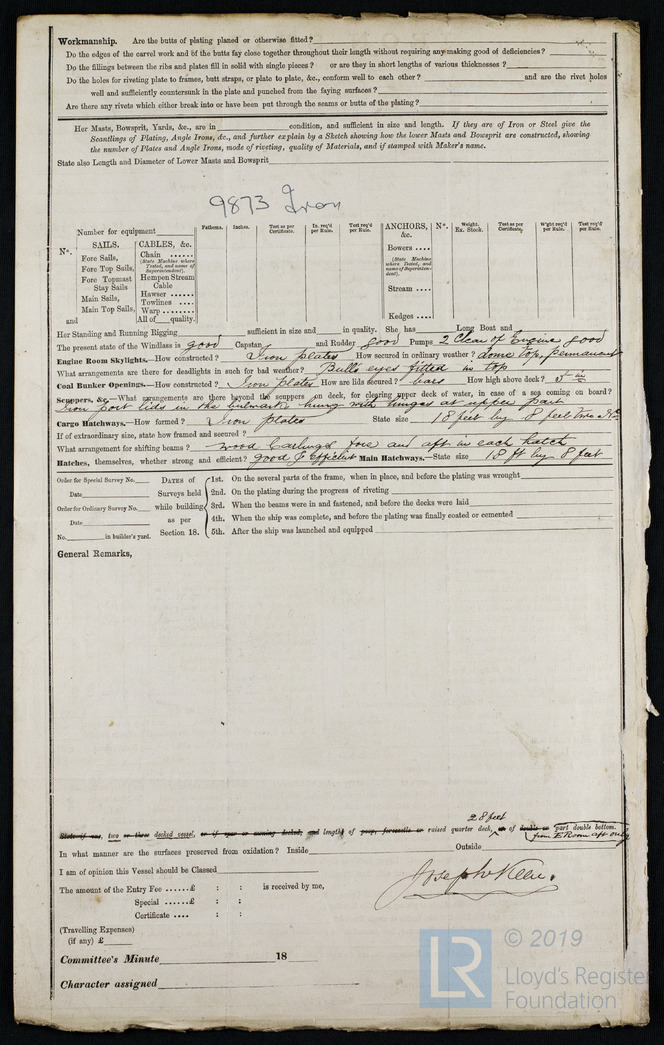 Workmanship. Are the butts of plating planed or otherwise fitted?
Do the edges of the carvel work and of the butts fay close together throughout their length without requiring any making good of deficiencies?
Do the fillings between the ribs and plates fill in solid with single pieces? or are they in short lengths of various thicknesses?
Do the holes for riveting plate to frames, butt straps, or plate to plate, &c., conform well to each other? and are the rivet holes
well and sufficiently countersunk in the plate and punched from the faying surfaces?
Are there any rivets which either break into or have been put through the seams or butts of the plating?
Her Masts, Bowsprit, Yards, &c., are in condition, and sufficient in size and length. If they are of Iron or Steel give the
Scantlings of Plating, Angle Irons, &c., and further explain by a Sketch showing how the lower Masts and Bowsprit are constructed, showing
the number of Plates and Angle Irons, mode of riveting, quality of Materials, and if stamped with Maker's name.
State also Length and Diameter of Lower Masts and Bowsprit
9873 Iron
Number for equipment
Fathoms. Inches. Test as per Certificate. In. req'd per Rule. Test req'd per Rule.
ANCHORS, &c. Nº. Weight. Ex. Stock. Test as per Certificate. W'ght req'd per Rule. Test req'd per Rule.
Nº. SAILS. CABLES, &c.
Fore Sails, Chain
(State Machine where Tested, and name of Superintendent).
Fore Top Sails, Hempen Stream Cable
Fore Topmast Stay Sails Hawser
Towlines
Main Sails, Warp
Main Top Sails, All of quality.
and
Bowers
(State Machine where Tested, and name of Superintendent).
Stream
Kedges
Her Standing and Running Rigging sufficient in size and in quality. She has Long Boat and
The present state of the Windlass is good Capstan and Rudder good Pumps 2 Clear of Engine good
Engine Room Skylights.—How constructed? Iron plates How secured in ordinary weather? dome top, permanent
What arrangements are there for deadlights in such for bad weather? Bulls eyes fitted in top
Coal Bunker Openings.—How constructed? Iron plates How are lids secured? bars How high above deck?
Scuppers, &c.—What arrangements are there beyond the scuppers on deck, for clearing upper deck of water, in case of a sea coming on board?
Iron port lids in the bulwarks hung with hinges at upper part
Cargo Hatchways.—How formed? Iron plates State size 18 feet by 8 feet
If of extraordinary size, state how framed and secured?
What arrangement for shifting beams? wood Carlings fore and aft in each hatch
Hatches, themselves, whether strong and efficient? good & efficient Main Hatchways.—State size 18 ft by 8 feet
Order for Special Survey No.
Date
Order for Ordinary Survey No.
Date
No. in builder's yard.
DATES of Surveys held while building as per Section 18.
1st. On the several parts of the frame, when in place, and before the plating was wrought
2nd. On the plating during the progress of riveting
3rd. When the beams were in and fastened, and before the decks were laid
4th. When the ship was complete, and before the plating was finally coated or cemented
5th. After the ship was launched and equipped
General Remarks,
28 feet
State if one, two or three decked vessel, or if spar or awning decked, and length of poop, forecastle or raised quarter deck, or of double or part double bottom.
from E Room aft only
In what manner are the surfaces preserved from oxidation? Inside Outside
I am of opinion this Vessel should be Classed
The amount of the Entry Fee £ : : is received by me,
Special £ : :
Certificate : :
Joseph Keen.
(Travelling Expenses)
(if any) £
Committee's Minute 18
Character assigned
LR © 2019
Lloyd's Register
Foundation